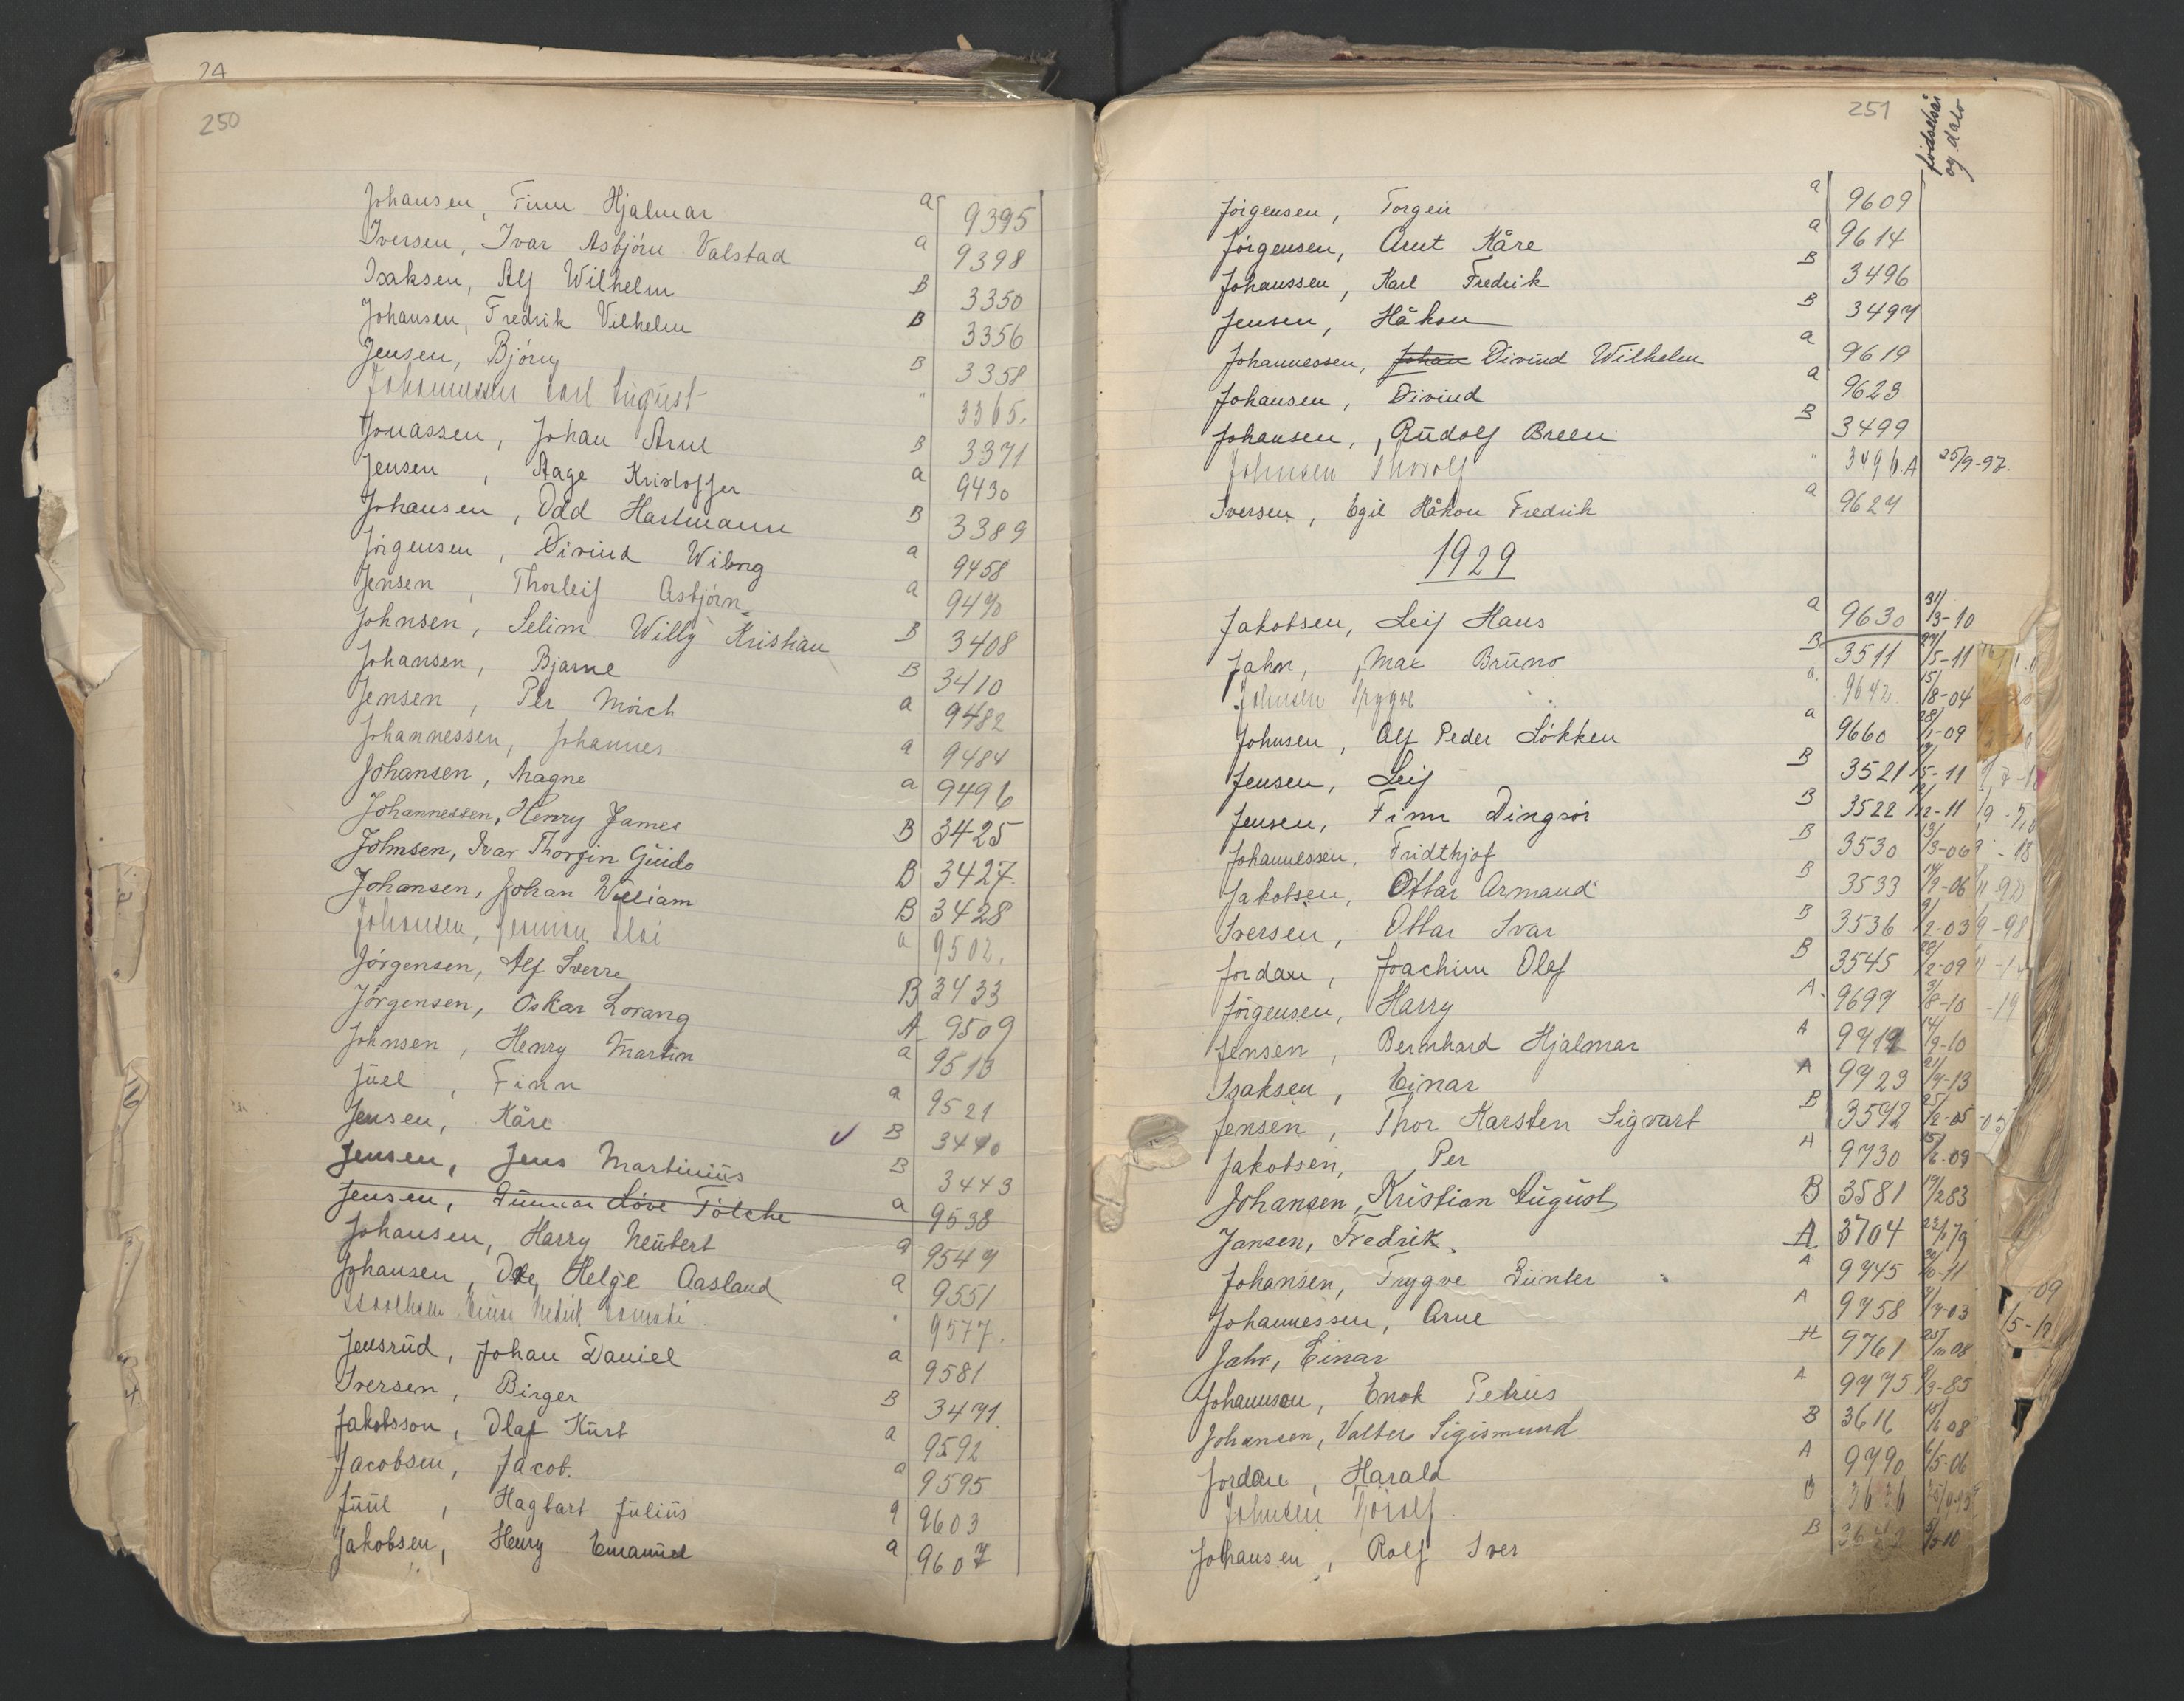 24
250
Johansen, Finn Hjalmar a 9395
Iversen, Ivar Asbjørn Valstad a 9398
Isaksen, Alf Wilhelm B 3350
Johansen, Fredrik Vilhelm B 3356
Jensen, Bjørn B 3358
Johannessen Carl August " 3365.
Jonassen, Johan Arnt B 3371
Jensen, Aage Kristoffer a 9430
Johansen, Odd Hartmann B 3389
Jörgensen, Öivind Wiborg a 9458
Jensen, Thorleif Asbjörn a 9470
Johnsen, Selim Willy Kristian B 3408
Johansen, Bjarne B 3410
Jensen, Per Mörch a 9482
Johannessen, Johannes a 9484
Johansen, Magne a 9496
Johannessen, Henry James B 3425
Johnsen, Ivar Thorfin Guido B 3427.
Johansen, Johan William B 3428
Johansen, a 9502.
Jörgensen, Alf Sverre B 3433
Jörgensen, Oskar Lorang A 9509
Johnsen, Henry Martin a 9513
Juel, Finn a 9521
Jensen, Kåre B 3440
Jensen, Jens Martinius B 3443
Jensen, Gunnar Löve Tölche a 9538
Johansen, Harry Neubert a 9547
Johansen, Helge Aasland a 9551
9577.
Jensrud, Johan Daniel a 9581
Iversen, Birger B 3471
Jakobsson, Olaf Kurt a 9592
Jacobsen, Jacob. a 9595
Juul, Hagbart Julius a 9603
Jakobsen, Henry Emanuel a 9607
251
fødselsår og dato
Jörgensen, Torgeir a 9609
Jörgensen, Arnt Kåre a 9614
Johanssen, Karl Fredrik B 3496
Jensen, Håkon B 3497
Johannessen, Johan Öivind Wilhelm a 9619
Johansen, Öivind a 9623
Johansen, Rudolf Breen B 3499
Johnsen Thorolf " 3496.A 25/9-97.
Iversen, Egil Håkon Fredrik a 9627
1929
Jakobsen, Leif Hans a 9630 31/3-10
Jahn, Max Bruno B 3511 27/5-11
Johnsen Trygve a. 9642. 15/8-04
Johnsen, Alf Peder Lökken a 9660 28/1-09
Jensen, Leif B 3521 /5-11
Jensen, Finn Dingsör B 3522 /12-11
Johannessen, Fridthjof B 3530 13/3-06
Jakobsen, Ottar Armand B 3533 /9-06
Iversen, Ottar Ivar B 3536 /2-03
Jordan, Joachim Olaf B 3545 28/2-09
Jörgensen, Harry A. 9697 /8-10
Jensen, Bernhard Hjalmar A 9719 14/9-10
Isaksen, Einar A 9723 21/7-13
Jensen, Thor Karsten Sigvart B 3592 25/2-05
Jakobsen, Per A 9730 /6-09
Johansen, Kristian August B 3581 19/2 83
Jansen, Fredrik. A 3704 22/1 79
Johansen, Trygve Günter A 9745 /10-11
Johannessen, Arne A 9758 /7-03
Jahr, Einar A 9761 25/11 08
Johannson, Enok Petrus A 9775 /3-85
Johansen, Valter Sigismund B 3616 08
Jordan, Harald A 9790 6/5-06
Johnsen B 3636
Johansen, Rolf Iver B 3642